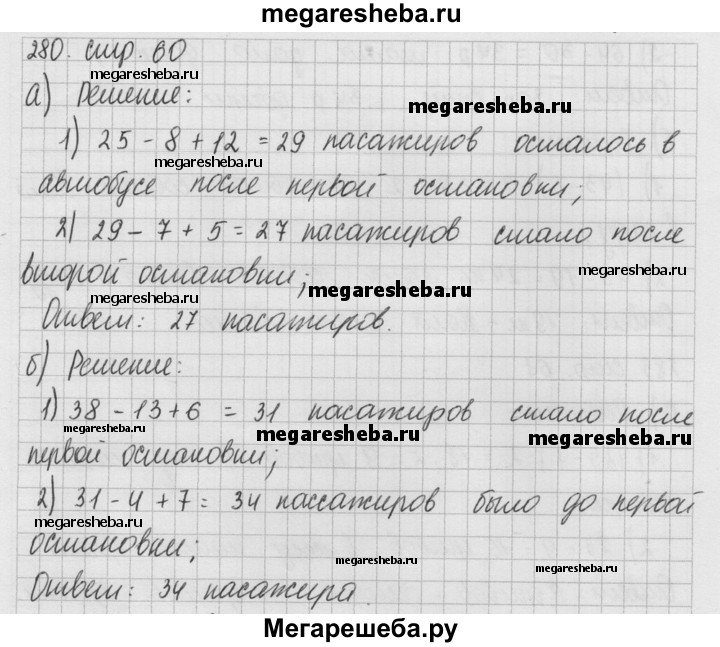 megaresheba.ru
280. стр. 60
megaresheba.ru
а) Решение:
megaresheba.ru
1) 25 - 8 + 12 = 29 пасажиров осталось в
megaresheba.ru
автобусе после первой остановки;
2) 29 - 7 + 5 = 27 пасажиров стало после
второй остановки;
megaresheba.ru
megaresheba.ru
megaresheba.ru
Ответ: 27 пасажиров.
б) Решение:
1) 38 - 13 + 6 = 31 пасажиров стало после
megaresheba.ru
megaresheba.ru
megaresheba.ru
первой остановки;
2) 31 - 4 + 7 = 34 пассажиров было до первой
megaresheba.ru
остановки;
megaresheba.ru
megaresheba.ru
Ответ: 34 пасажира.
Мегарешеба.ру